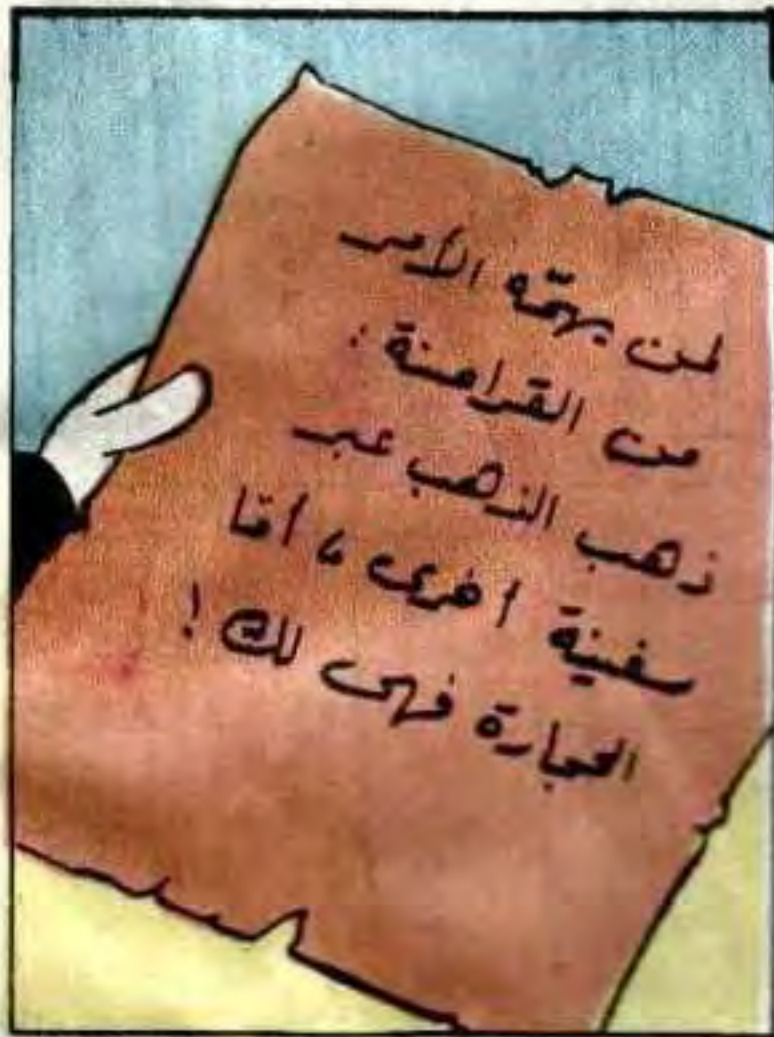 لمن يهمّه الأمر
من القراصنة :
ذهب الذهب عبر
سفينة أخرى ، أمّا
الحجارة فهى لك !